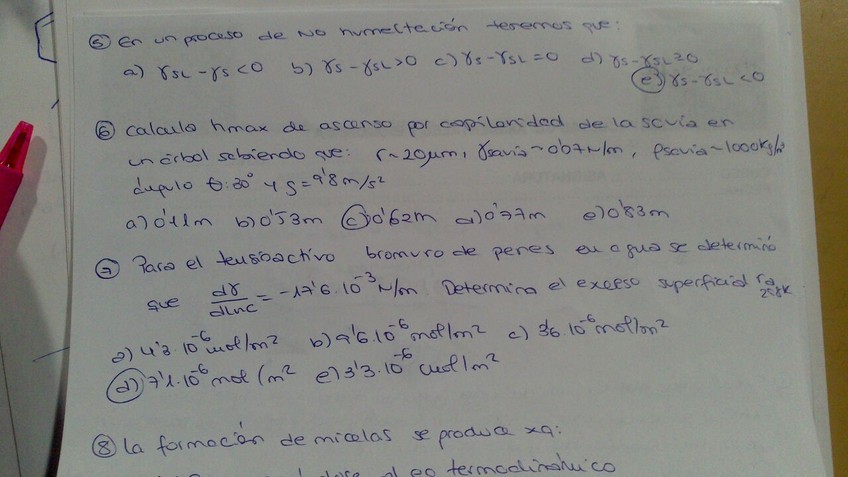 ⑤ En un proceso de NO humectación tenemos que:
a) γSL - γS < 0 b) γS - γSL > 0 c) γS - γSL = 0 d) γS - γSL ≥ 0
e) γS - γSL < 0
⑥ Calcula hmax de ascenso por capilaridad de la savia en
un árbol sabiendo que: r ~ 20μm, γsavia ~ 0'07 N/m, ρsavia ~ 1000kg/m³
ángulo θ: 30° y g = 9'8 m/s²
a) 0'11m b) 0'53m c) 0'62m d) 0'77m e) 0'83m
⑦ Para el tensioactivo bromuro de penes en agua se determinó
que dγ/dLnc = -17'6·10⁻³ N/m Determina el exceso superficial
298K
a) 4'3·10⁻⁶ mol/m² b) 9'6·10⁻⁶ mol/m² c) 3'6·10⁻⁶ mol/m²
d) 7'1·10⁻⁶ mol/m² e) 3'3·10⁻⁶ mol/m²
⑧ La formación de micelas se produce xq:
al eq termodinámico